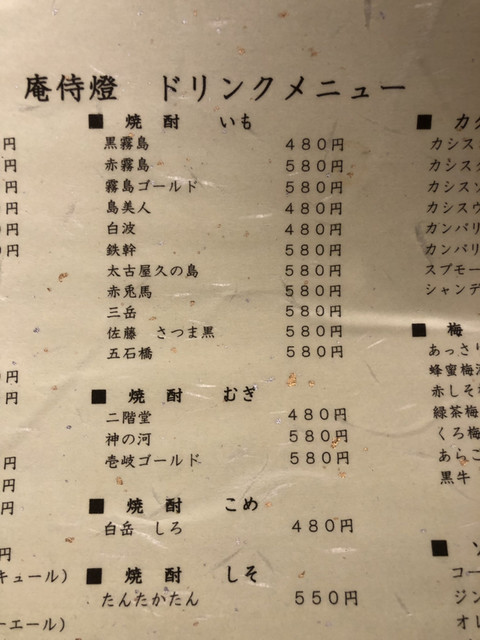 庵侍燈　ドリンクメニュー
円
円
円
円
円
円
円
円
円
円
円
円
キュール）
ーエール）
■　焼　酎　　いも
黒霧島　480円
赤霧島　580円
霧島ゴールド　580円
島美人　480円
白波　480円
鉄幹　580円
太古屋久の島　580円
赤兎馬　580円
三岳　580円
佐藤　さつま黒　580円
五石橋　580円
■　焼　酎　　むぎ
二階堂　480円
神の河　580円
壱岐ゴールド　580円
■　焼　酎　　こめ
白岳　しろ　480円
■　焼　酎　　しそ
たんたかたん　550円
■　カク
カシス
カシス
カシスソ
カシスウ
カンパリ
カンパリ
スプモー
シャンデ
■　梅
あっさり
蜂蜜梅酒
赤しそ梅
緑茶梅
くろ梅
あらご
黒牛
■　ソ
コー
ジン
オレ